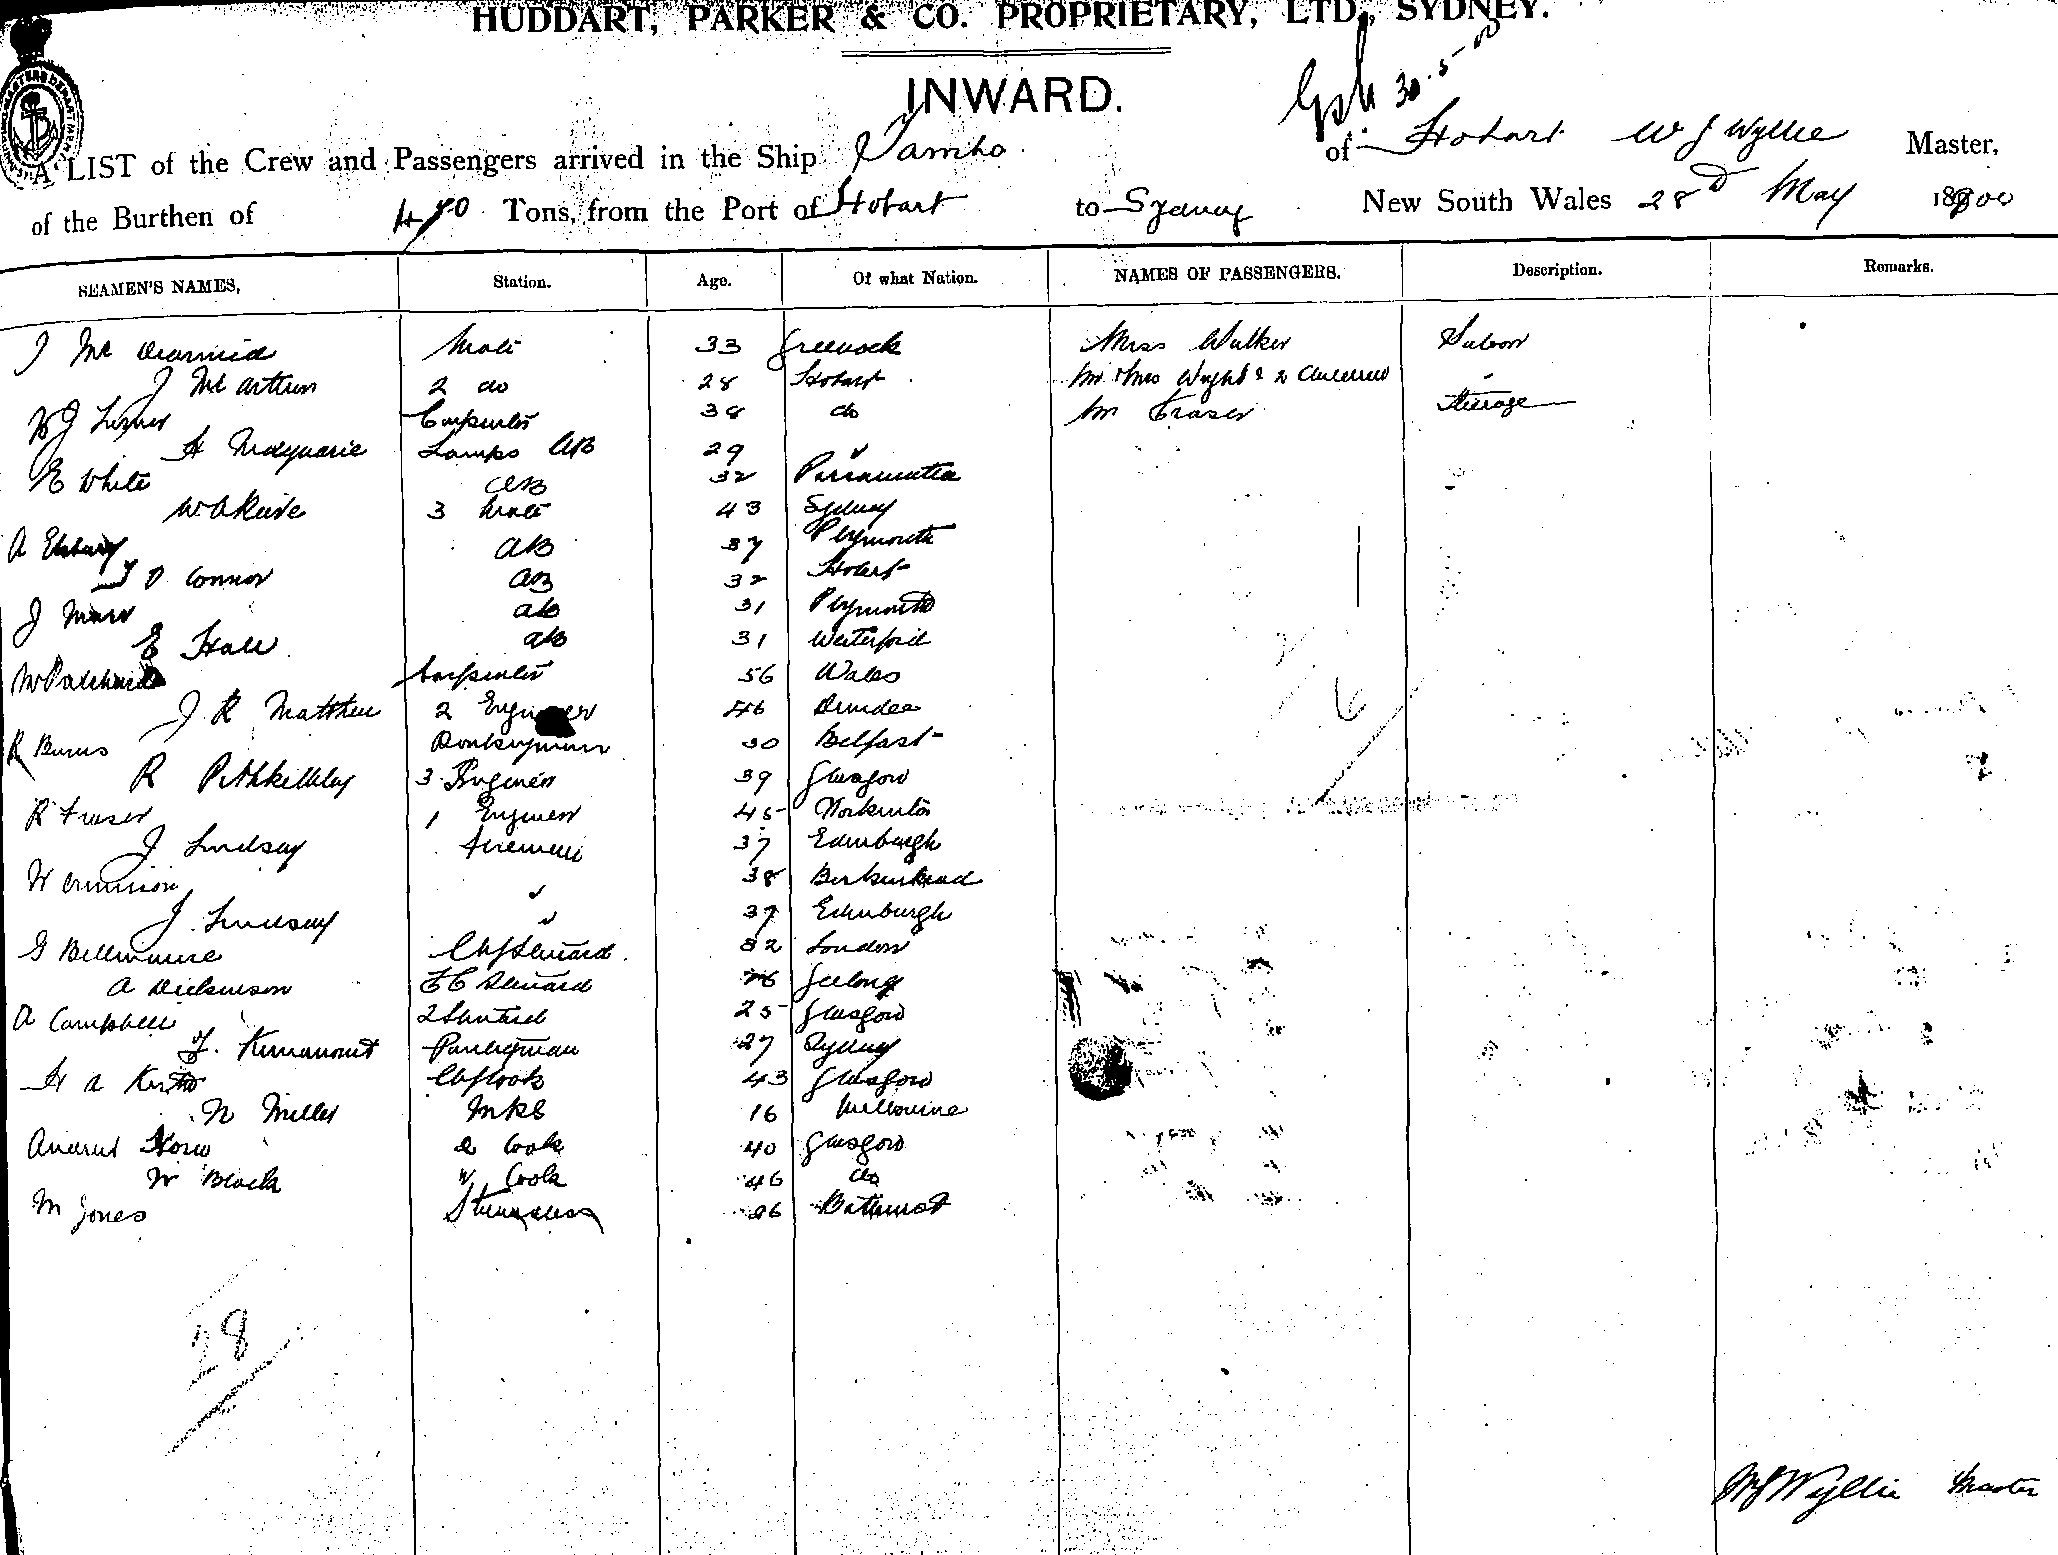 HUDDART, PARKER & CO. PROPRIETARY, LTD., SYDNEY.
INWARD.
30.5.00
A LIST of the Crew and Passengers arrived in the Ship of Hobart W J Wyllie Master,
of the Burthen of Tons, from the Port of Hobart to Sydney New South Wales 28 May 1900
SEAMEN'S NAMES, Station. Age. Of what Nation. NAMES OF PASSENGERS. Description. Remarks.
J Mc Diarmid Mate 33 Greenock Miss Walker Saloon
J McArthur 2 do 28 Hobart Mr & Mrs Wright & 2 Children "
W J Carpenter 38 do Mr Fraser Steerage
H Macquarie Lamps AB 29 "
E White AB 32 Parramatta
W A 3 Mate 43 Sydney
A AB 37 Plymouth
J O Connor AB 32 Hobart
J AB 31 Plymouth
E Hall AB 31 Waterford
W Carpenter 56 Wales
J R Matthew 2 Engineer 46 Dundee
R Burns Donkeyman 30 Belfast
R 3 Engineer 39 Glasgow
R Fraser 1 Engineer 45
J Lindsay Fireman 37 Edinburgh
W " 38 Birkenhead
J Lindsay " 37 Edinburgh
G Chf Steward 32 London
A Dickinson F C Steward Geelong
A Campbell 2 Steward 25 Glasgow
Pantryman 27 Sydney
H A Chf Cook 43 Glasgow
N Miller 16 Melbourne
Andrew 2 Cook 40 Glasgow
W Black Cook 46 do
M Jones Stewardess 26 Bathurst
6
28
W J Wyllie Master